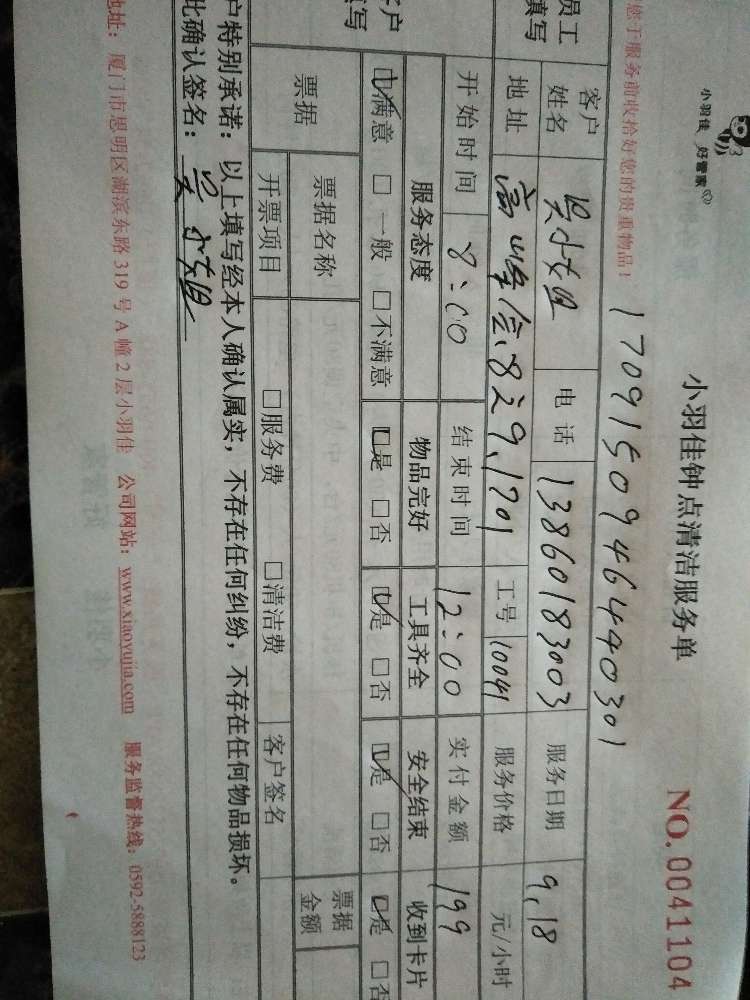 小羽佳 好管家
小羽佳钟点清洁服务单
NO.0041104
您于服务前收拾好您的贵重物品！
17091509464440301
员工
填写
客户
姓名
吴小姐
电话
13860183003
服务日期
9.18
地址
829.1701
工号
10041
服务价格
元/小时
开始时间
8:00
结束时间
12:00
实付金额
199
客户
填写
服务态度
物品完好
工具齐全
安全结束
收到卡片
☑满意 □一般 □不满意
☑是 □否
☑是 □否
☑是 □否
☑是 □否
票据
票据名称
票据
金额
开票项目
□服务费
□清洁费
客户签名
户特别承诺：以上填写经本人确认属实，不存在任何纠纷，不存在任何物品损坏。
此确认签名：吴小姐
地址：厦门市思明区湖滨东路319号A幢2层小羽佳 公司网站：www.xiaoyujia.com 服务监督热线：0592-5888123